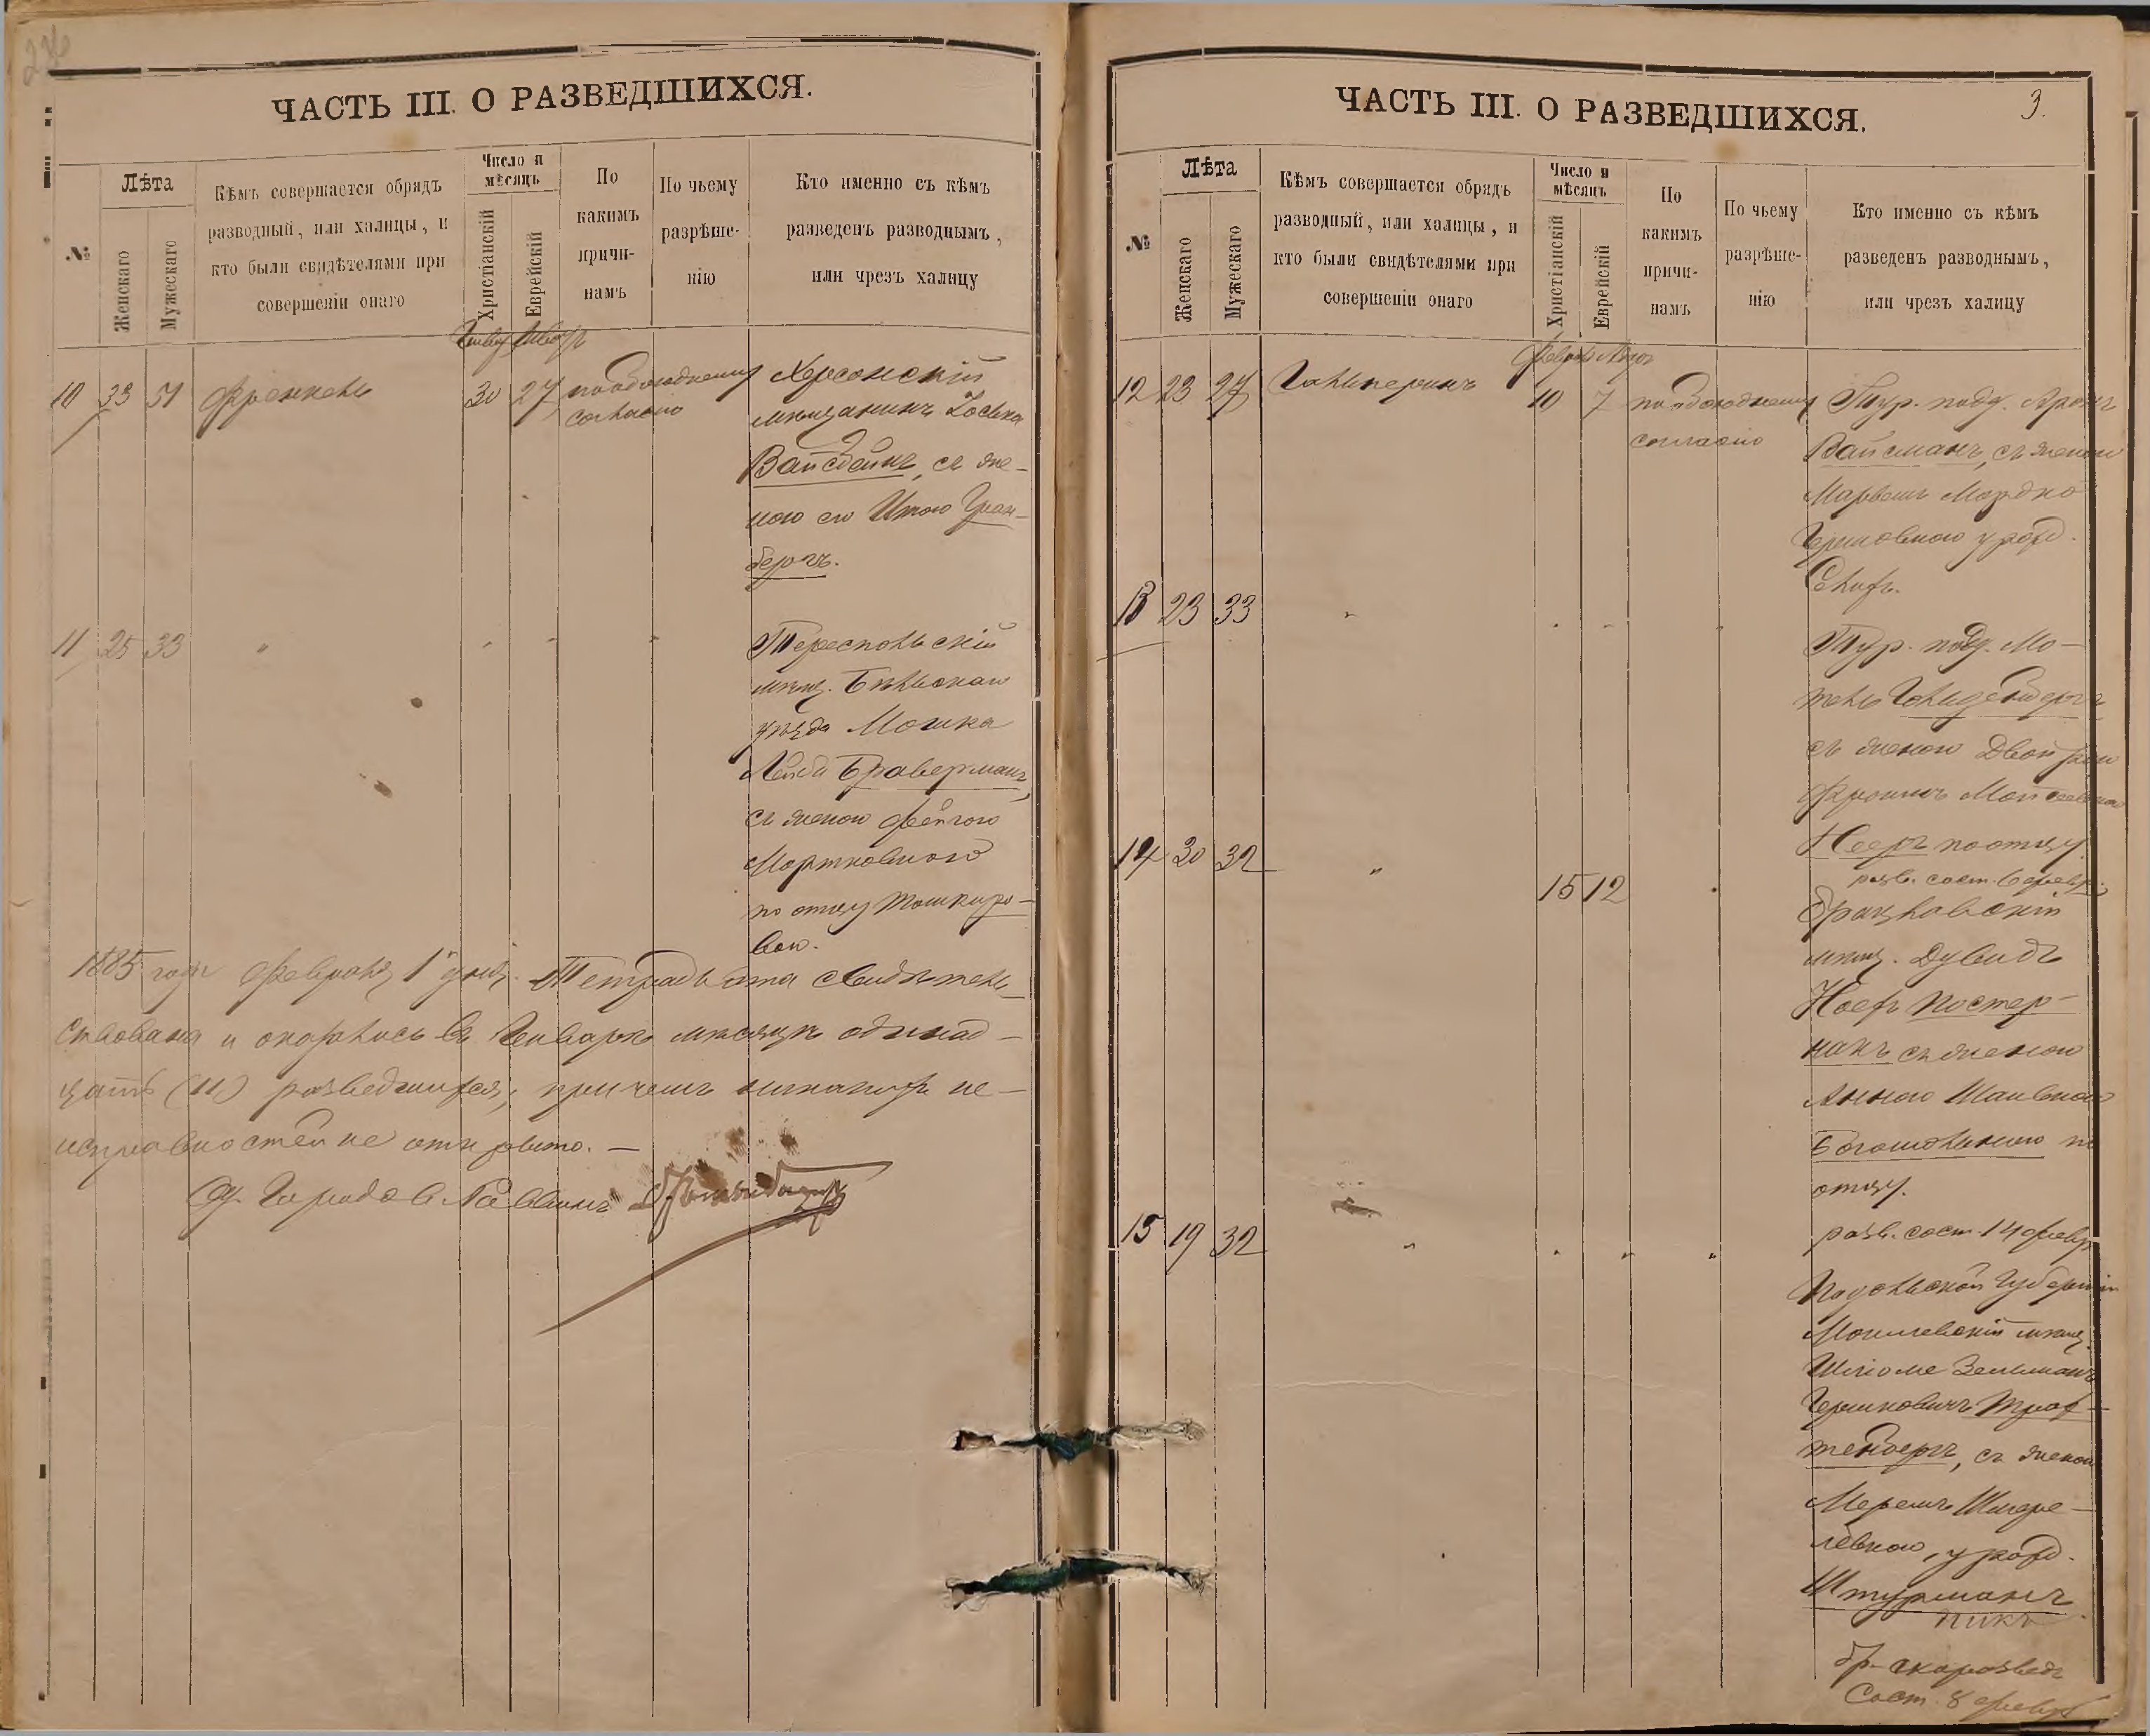 ЧАСТЬ III. О РАЗВЕДШИХСЯ.
№
Лѣта
Женскаго
Мужескаго
Кѣмъ совершается обрядъ
разводный, или халицы, и
кто были свидѣтелями при
совершеніи онаго
Число и
мѣсяцъ
Христіанскій
Еврейскій
По
какимъ
причи-
намъ
По чьему
разрѣше-
нію
Кто именно съ кѣмъ
разведенъ разводнымъ,
или чрезъ халицу
10 33 51 Френкель 30 27 по обоюдному
согласію
Херсонскій
мѣщанинъ
Вайсбейнъ, съ же-
ною его Итою Грин-
бергъ.
11 25 33 " " " "
Тереспольскій
мѣщ. Бѣльскаго
уѣзда Мошка
Лейби Браверманъ,
съ женою Фейгою
Мортковною
по отцу Мошкиро-
вою.
1885 года Февраля 1 дня. Тетрадь эта свидѣтель-
ствована и оказалось въ Январѣ мѣсяцѣ одинад-
цать (11) разведшихся, при чемъ никакихъ не-
исправностей не открыто. —
Городов. Раввинъ
ЧАСТЬ III. О РАЗВЕДШИХСЯ.
3.
№
Лѣта
Женскаго
Мужескаго
Кѣмъ совершается обрядъ
разводный, или халицы, и
кто были свидѣтелями при
совершеніи онаго
Число и
мѣсяцъ
Христіанскій
Еврейскій
По
какимъ
причи-
намъ
По чьему
разрѣше-
нію
Кто именно съ кѣмъ
разведенъ разводнымъ,
или чрезъ халицу
12 23 27 Гальперинъ 10 7 по обоюдному
согласію
Тур. подд. Аронъ
Вайсманъ, съ женою
Гершковною урожд.
13 23 33 " " " "
Тур. подд. Мо-
тель Гольденбергъ
съ женою
Нееръ по отцу
разв. сост. 6 февр.
14 30 32 " 15 12 "
Брацлавскій
мѣщ. Дувидъ
Іосефъ Постер-
накъ съ женою
Анною Шаивною
Богомольною по
отцу.
разв. сост. 14 февр.
15 19 32 " " " "
Подольской Губерніи
Могилевскій мѣщ.
Шлiоме Зельманъ
Гершковичъ Трах-
тенберъ, съ женою
Меремъ Шмере-
левною, урожд.
Штурманъ
пикъ
Сост. 8 февр.